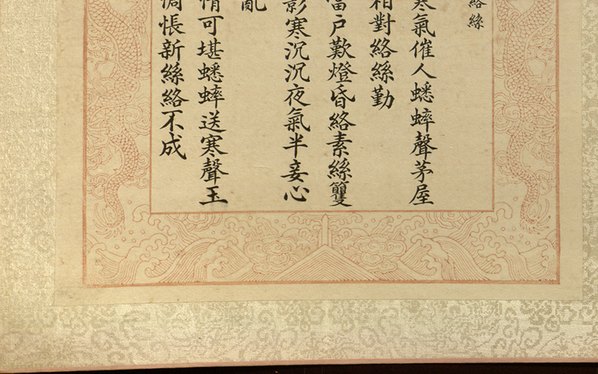 絡絲
寒氣催人蟋蟀聲茅屋
相對絡絲勤
當戶歎燈昏絡素絲雙
影寒沉沉夜氣半妾心
亂
情可堪蟋蟀送寒聲玉
惆悵新絲絡不成